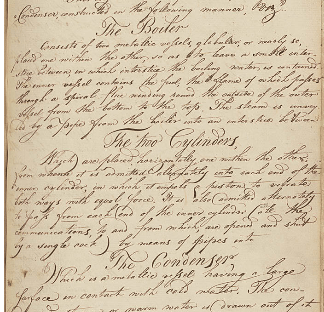 Condenser constructed in the following manner Viz.
The Boiler
Consists of two metallic vessels, globular, or nearly so,
placed one within the other, so as to leave a small inter-
stice between in which interstice the boiling water is contained
The inner vessel contains the fuel, the flame of which passes
through a spiral flue winding round the outside of the outer
vessel from the bottom to the top. The steam is convey-
ed by a pipe from the boiler into an interstice between
The two Cylinders
Which are placed horizontally one within the other,
from whence it is admitted alternately into each end of the
inner cylinder, in which it impels a piston to vibrate
both ways with equal force. It is also admitted alternately
to pass from each end of the inner cylinder (the
communications, to and from which, are opened and shut
by a single cock) by means of pipes into
The Condenser,
Which is a metallic vessel having a large
surface in contact with cold water. The con-
water is drawn out of it